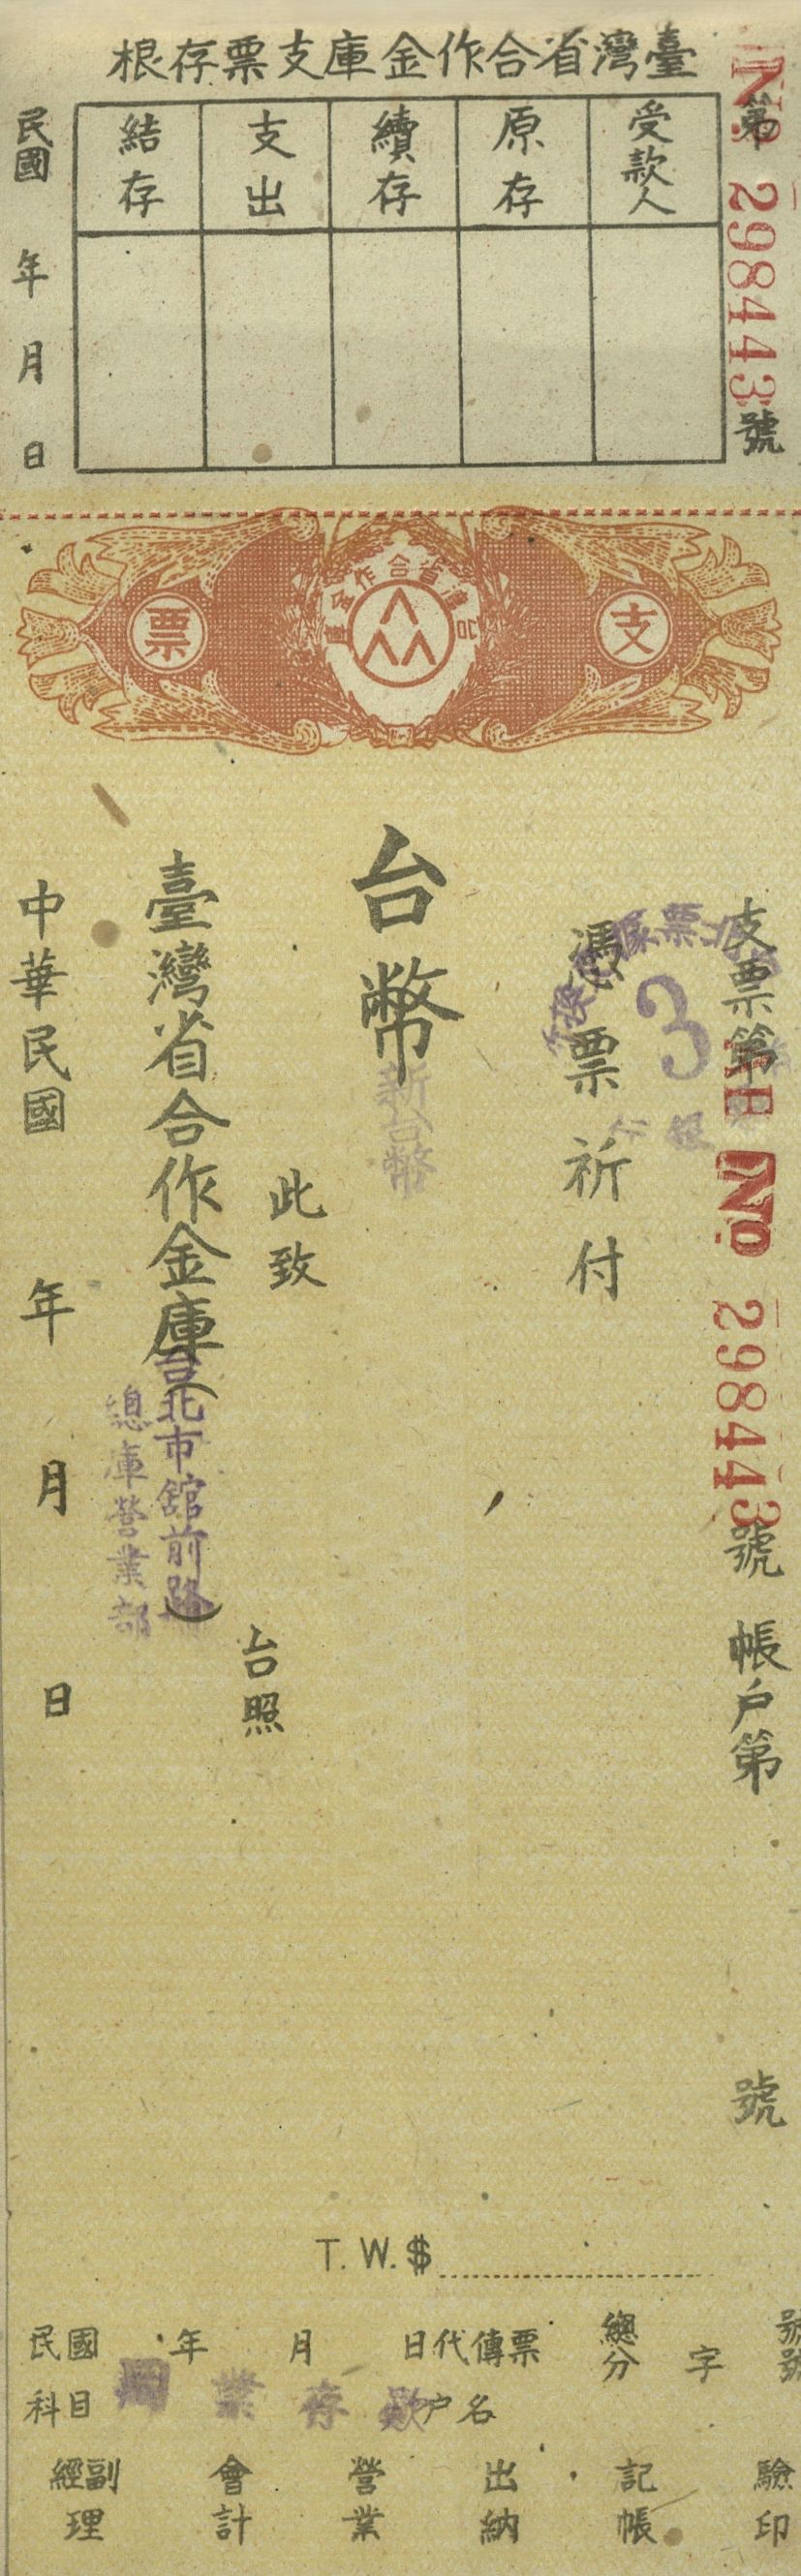 臺灣省合作金庫支票存根
第 No 298443 號
受款人
原存
續存
支出
結存
民國 年 月 日
支 票
支票第 No 298443 號 帳戶第 號
3
憑票祈付
台幣
新台幣
此致
臺灣省合作金庫
台北市舘前路
總庫營業部
台照
中華民國 年 月 日
T. W. $
民國 年 月 日代傳票 總分 字 號
科目 存款 戶名
經副理 會計 營業 出納 記帳 驗印